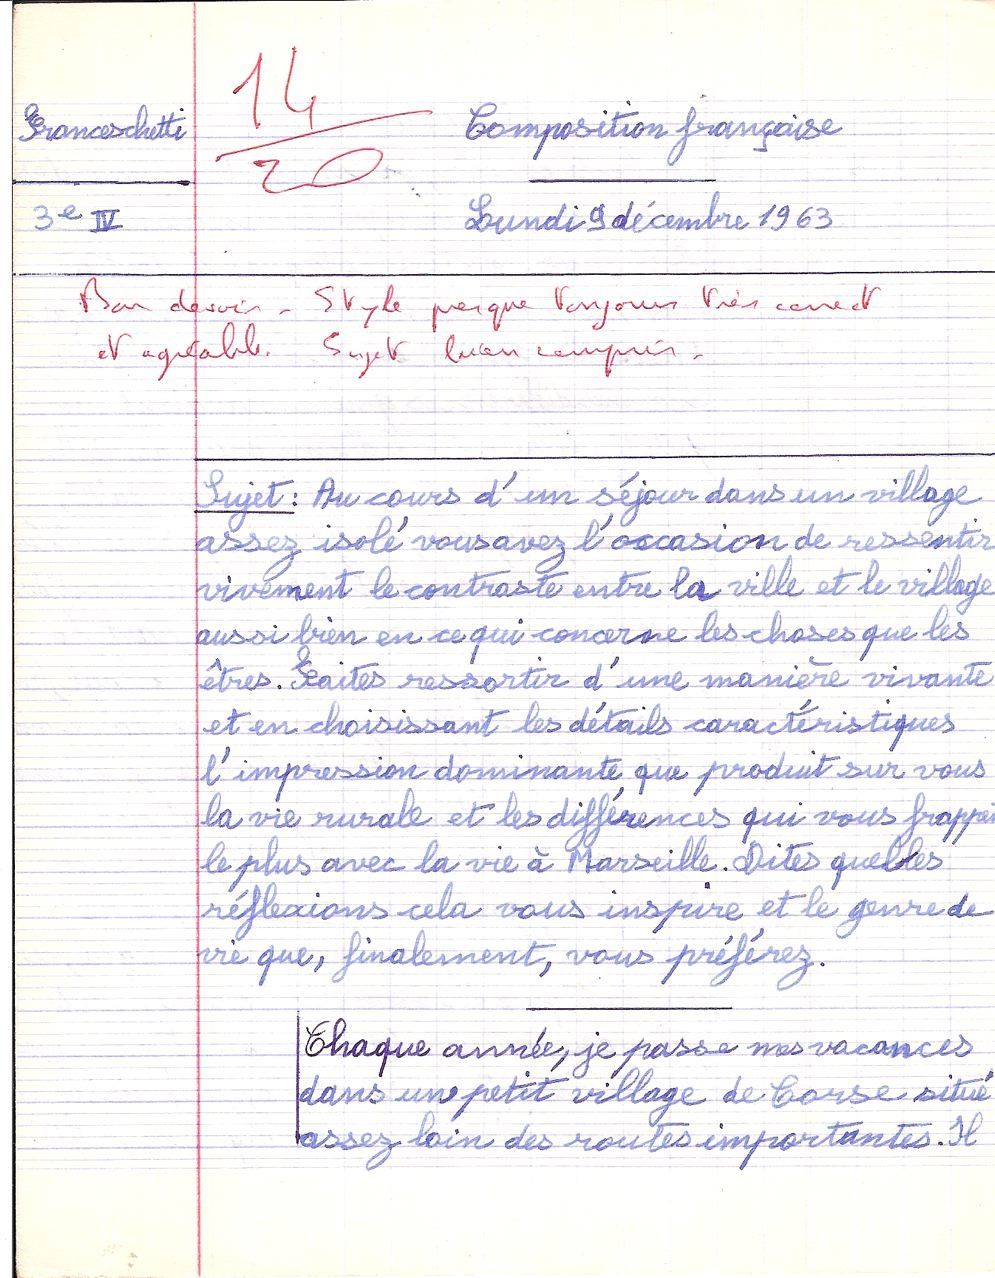 Franceschetti
14
20
Composition française
3e IV
Lundi 9 décembre 1963
Bon devoir. Style presque toujours très correct
et agréable. Sujet bien compris.
Sujet : Au cours d'un séjour dans un village
assez isolé vous avez l'occasion de ressentir
vivement le contraste entre la ville et le village
aussi bien en ce qui concerne les choses que les
êtres. Faites ressortir d'une manière vivante
et en choisissant les détails caractéristiques
l'impression dominante que produit sur vous
la vie rurale et les différences qui vous frappe
le plus avec la vie à Marseille. Dites quelles
réflexions cela vous inspire et le genre de
vie que, finalement, vous préférez.
Chaque année, je passe mes vacances
dans un petit village de Corse situé
assez loin des routes importantes. Il